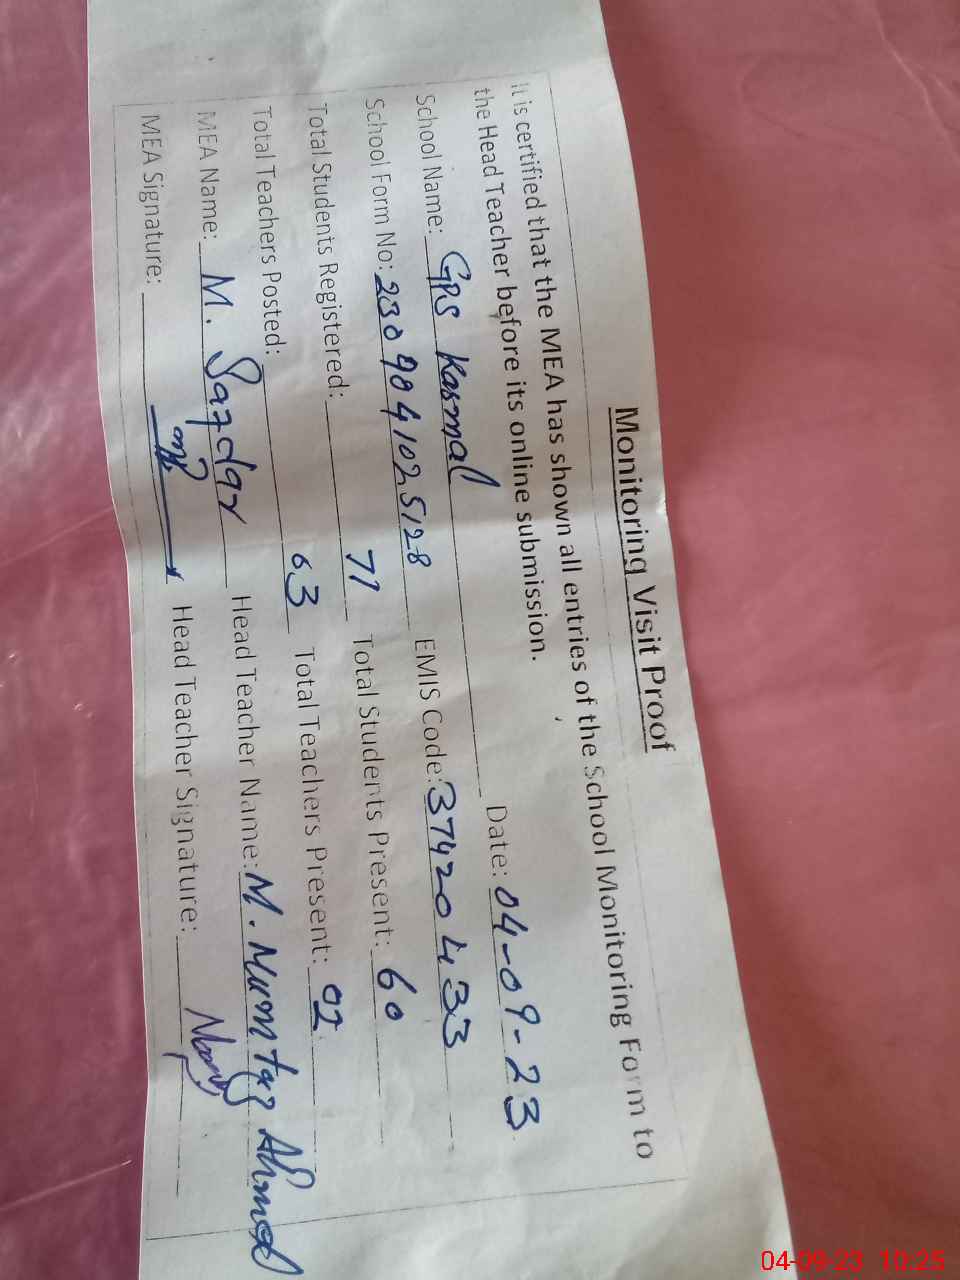 Monitoring Visit Proof
It is certified that the MEA has shown all entries of the School Monitoring Form to
the Head Teacher before its online submission.
School Name: GPS Kasmal Date: 04-09-23
School Form No: 2309041025128 EMIS Code: 37420433
Total Students Registered: 71 Total Students Present: 60
Total Teachers Posted: 03 Total Teachers Present: 02
MEA Name: M. Safdar Head Teacher Name: M. Mumtaz Ahmed
MEA Signature: Head Teacher Signature:
04-09-23 10:25